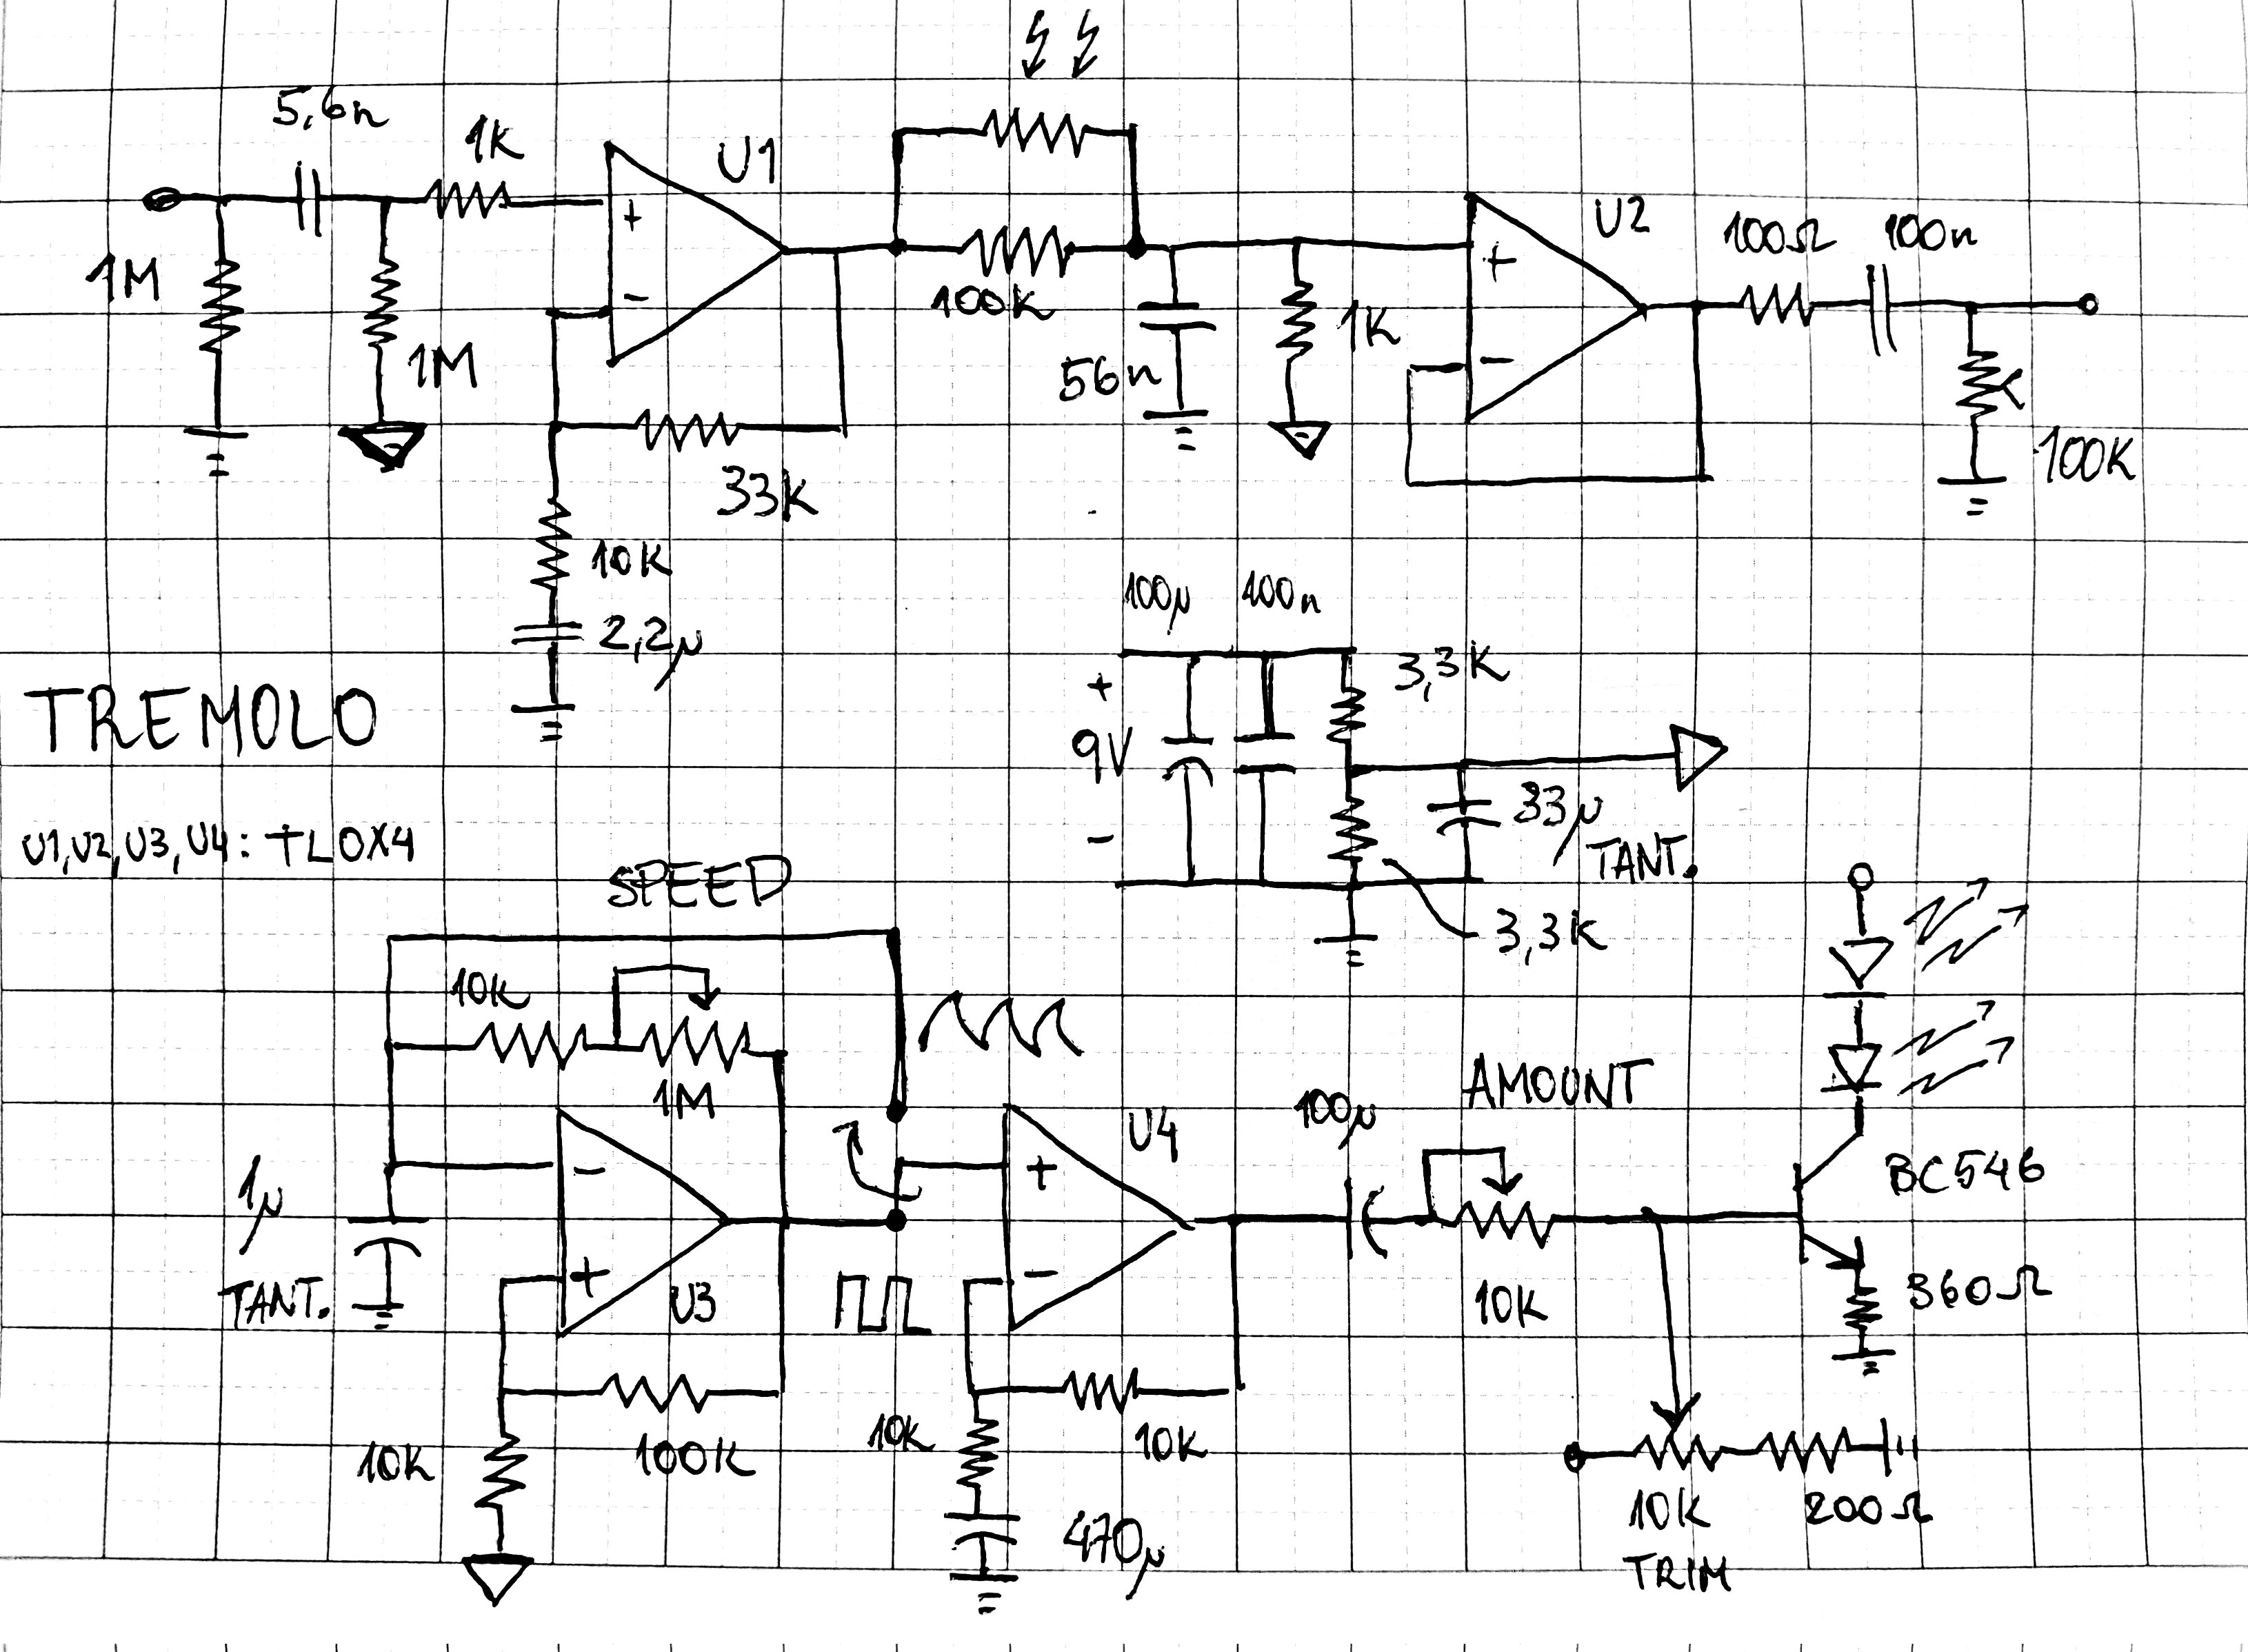 5,6n
1K
U1
1M
1M
33K
10K
2,2µ
100K
56n
1K
U2
100Ω
100n
100K
TREMOLO
U1,U2,U3,U4: TL0X4
100µ
100n
+
9V
-
3,3K
33µ
TANT.
3,3K
SPEED
10K
1M
1µ
TANT.
-
+
U3
10K
100K
U4
+
-
10K
10K
470µ
100µ
AMOUNT
10K
BC546
360Ω
10K
TRIM
200Ω